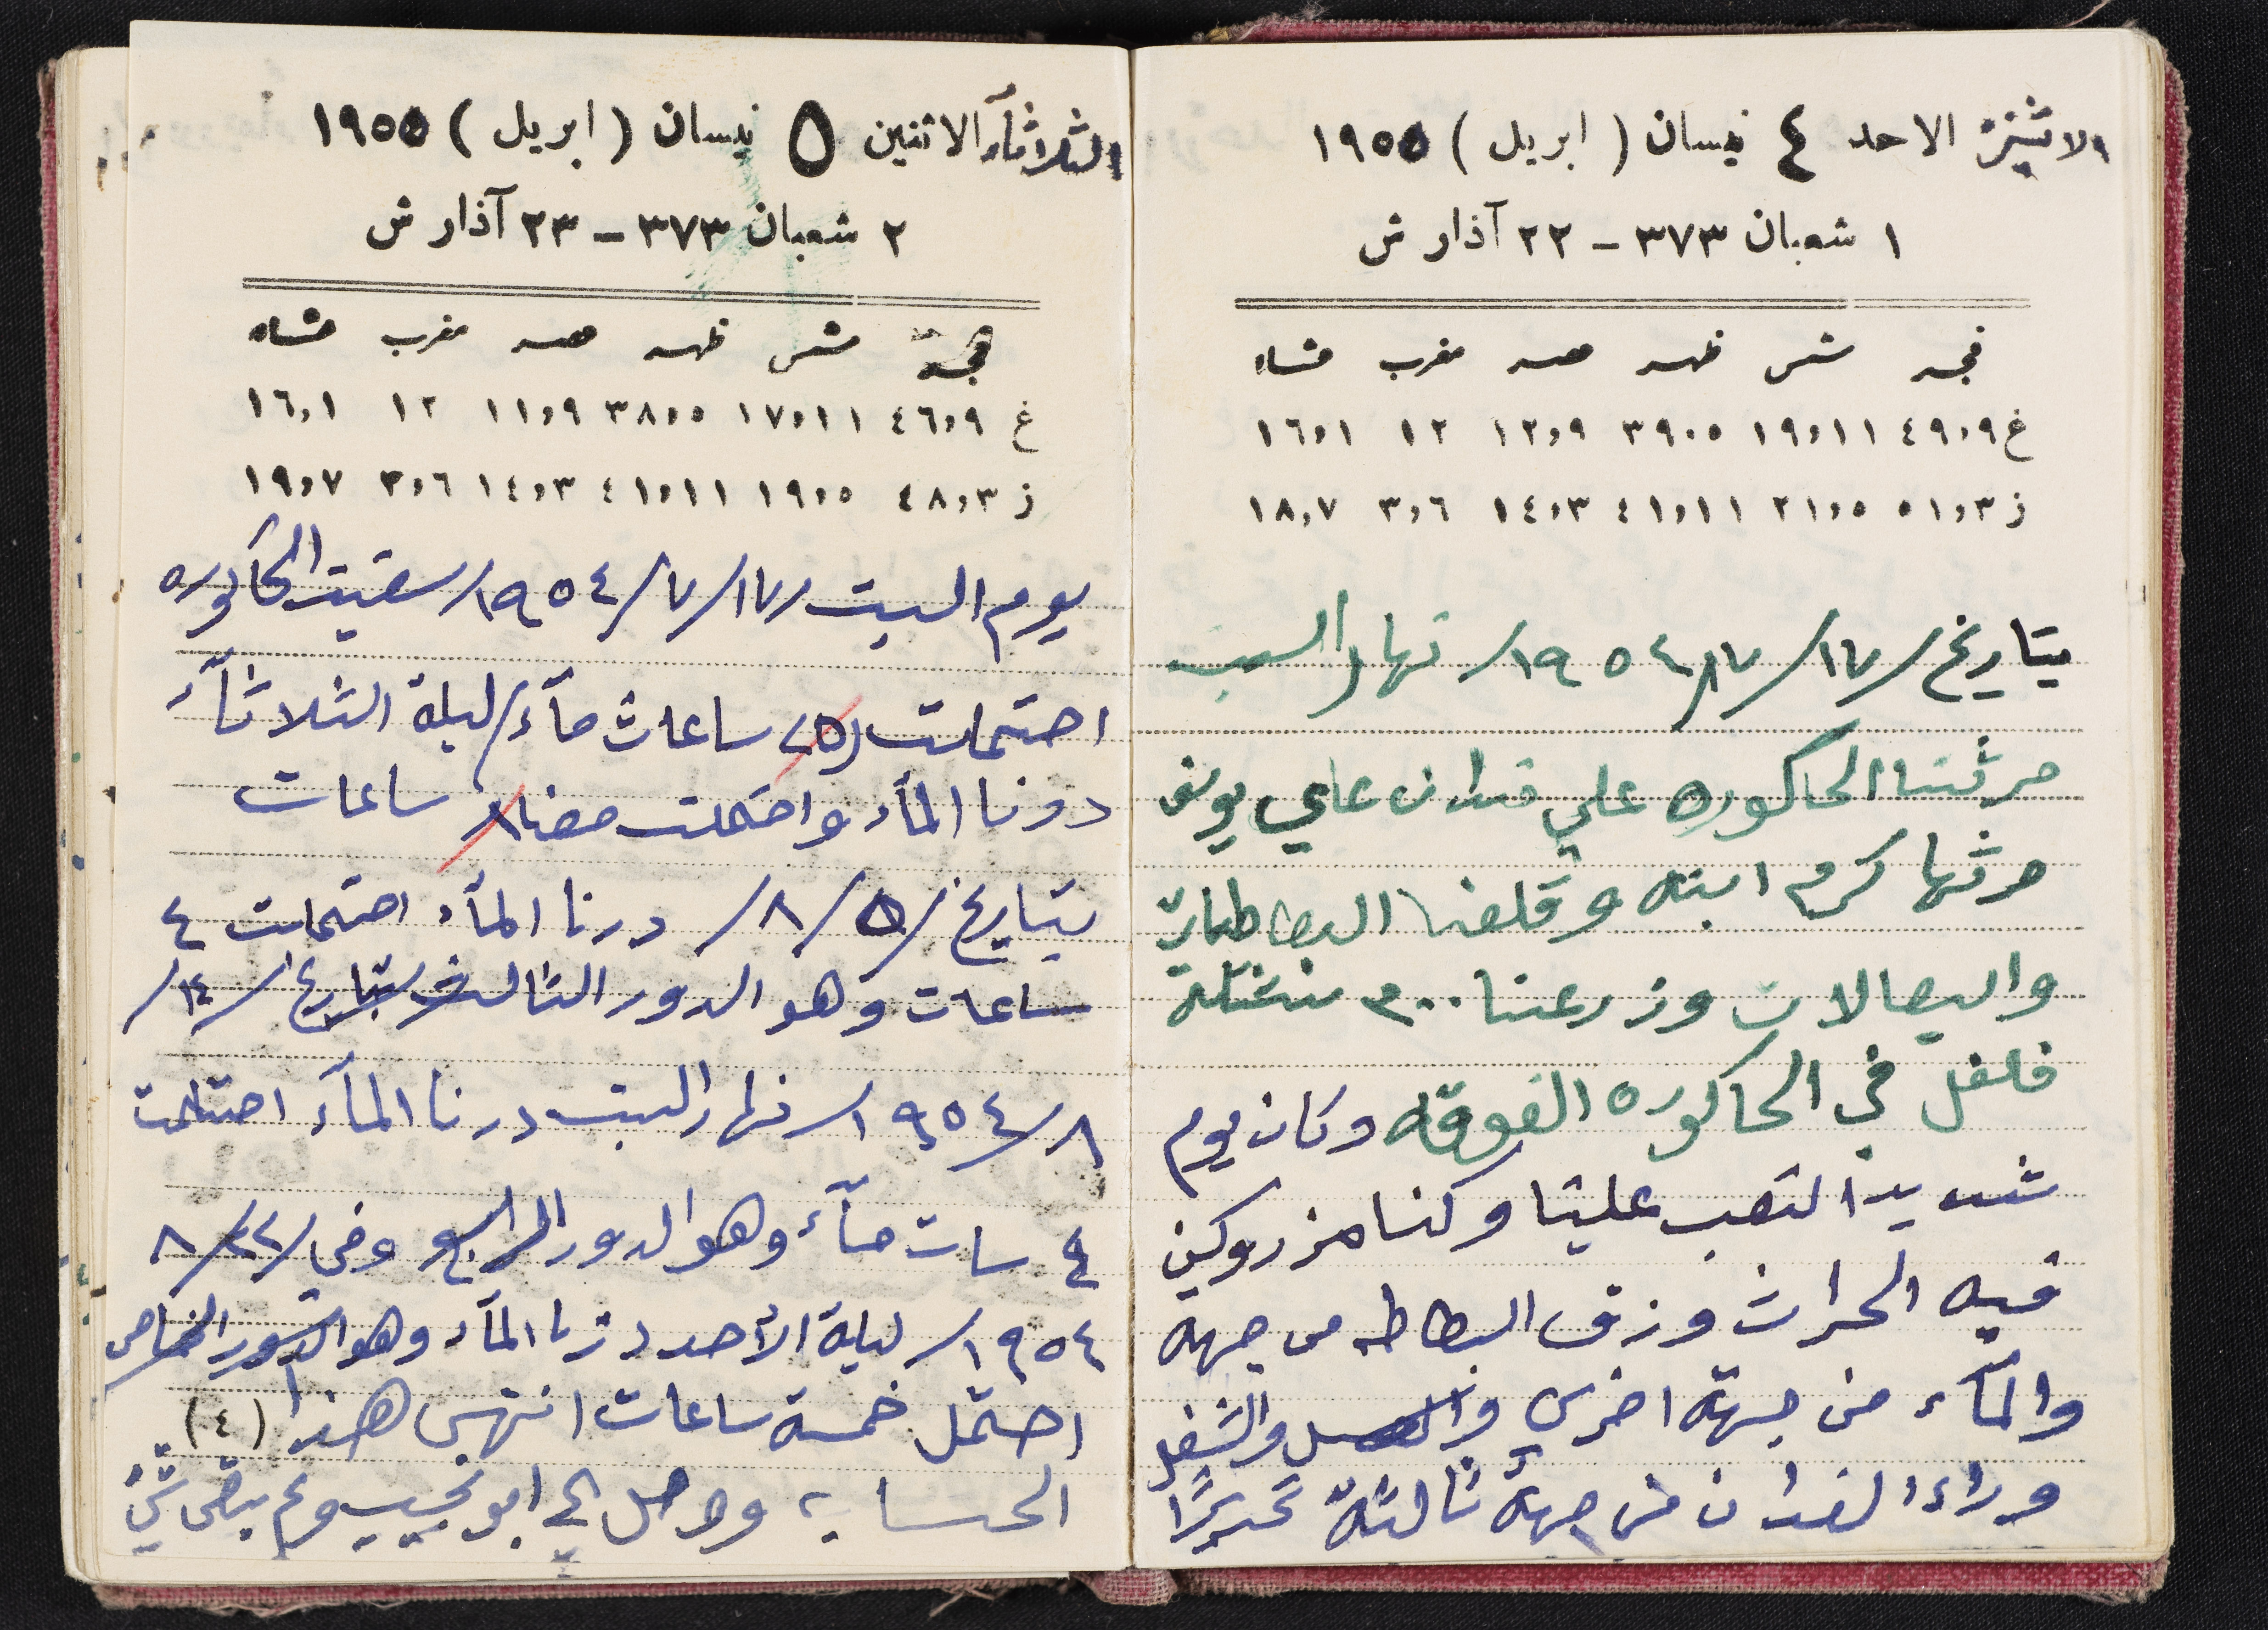 الاثنين الاحد ٤ نيسان ( ابريل ) ١٩٥٥
١ شعبان ٣٧٣ - ٢٢ آذار ش
فجر شمس ظهر عصر مغرب عشاء
غ ٤٩،٩ ١٩،١١ ٣٩،٥ ١٢،٩ ١٢ ١٦،١
ز ٥١،٣ ٢١،٥ ٤١،١١ ١٤،٣ ٣،٦ ١٨،٧
بتاريخ /١٧/ ٧/ ١٩٥٤/ نهار السبت
حرثنا الحاكوره علي فدان علي يونس
حرثها كرم ابنه وقلعنا البطاطات
والبصالات وزرعنا ٣٠٠ شتلة
فلفل في الحاكوره الفوقه وكان يوم
شديد التعب علينا وكنا مزروكين
فيه الحراث وزق البطاطه من جهة
والمآء من جهة اخرى والشغل
وراء الفدان من جهة ثالثة تحريرًا
الثلاثآء الاثنين ٥ نيسان ( ابريل ) ١٩٥٥
٢ شعبان ٣٧٣ - ٢٣ آذار ش
فجر شمس ظهر عصر مغرب عشاء
غ ٤٦،٩ ١٧،١١ ٣٨،٥ ١١،٩ ١٢ ١٦،١
ز ٤٨،٣ ١٩،٥ ٤١،١١ ١٤،٣ ٣،٦ ١٩،٧
يوم السبت /١٧/ ٧/ ١٩٥٤/ سقيت الحاكوره
احتملت (٥) ساعات مآء/ ليلة الثلاثآء
درنا المآء واحتملت معنا ٨ ساعات
بتاريخ /٥/ ٨/ درنا المآء احتملت ٤
ساعات وهو الدور الثالث وبتاريخ /١٤/
٨/ ١٩٥٤/ نهار السبت درنا المآء احتملت
٤ سات مآء وهو الدور الرابع وفي /٢٢/ ٨
١٩٥٤/ ليلة الأحد درنا المآء وهو الدور الخامس
احتمل خمسة ساعات انتهى هذا (٤)
الحساب، وصل الى ابو نجيب ولم يبقى شيئ